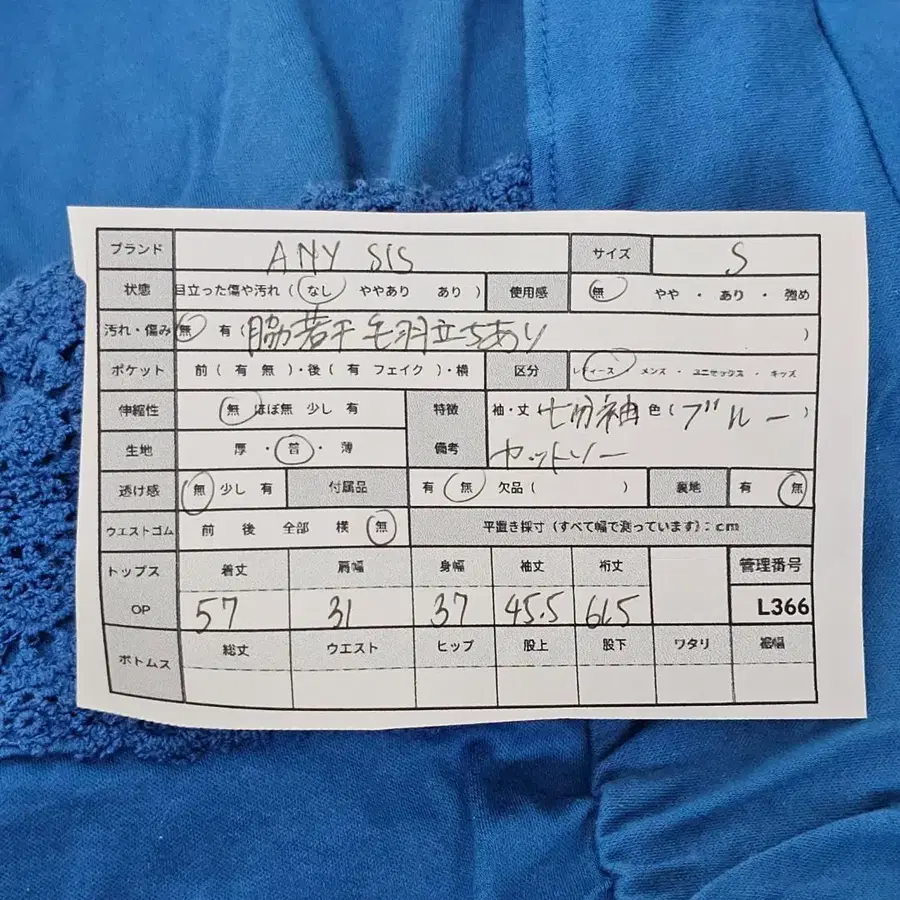 ブランド ANY SIS サイズ S
状態 目立った傷や汚れ（ なし ややあり あり ） 使用感 無 やや ・ あり ・ 強め
汚れ・傷み 無 有（ 脇若干毛羽立ちあり ）
ポケット 前（ 有 無 ）・後（ 有 フェイク ）・横 区分 レディース メンズ ・ ユニセックス ・ キッズ
伸縮性 無 ほぼ無 少し 有 特徴 袖・丈 七分袖 色（ ブルー ）
生地 厚 ・ 普 ・ 薄 備考 カットソー
透け感 無 少し 有 付属品 有 無 欠品（ ）裏地 有 無
ウエストゴム 前 後 全部 横 無 平置き採寸（すべて幅で測っています）：cm
トップス 着丈 肩幅 身幅 袖丈 裄丈 管理番号
OP 57 31 37 45.5 61.5 L366
ボトムス 総丈 ウエスト ヒップ 股上 股下 ワタリ 裾幅